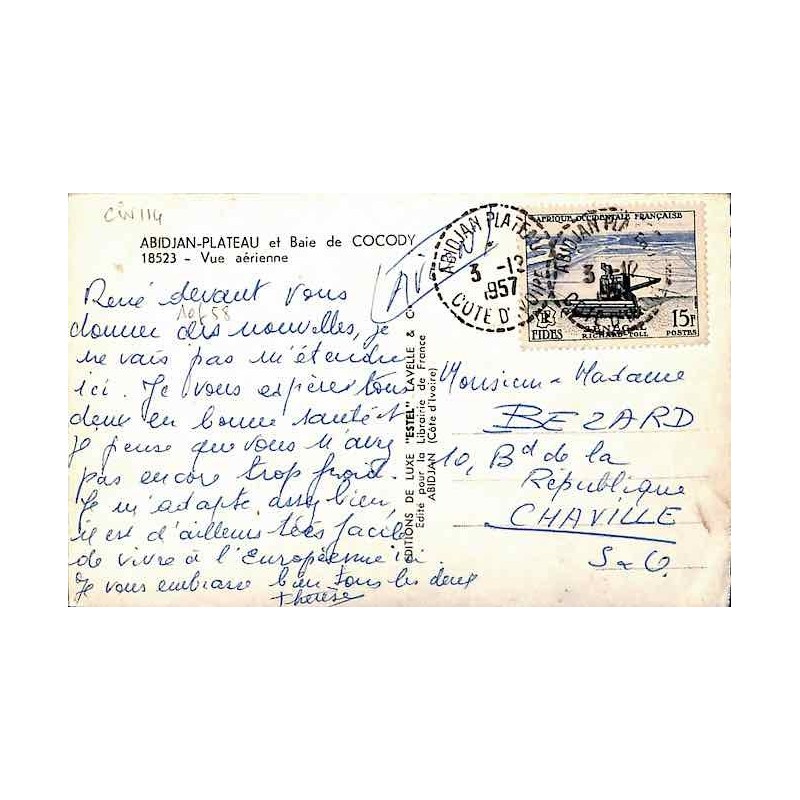 CIV114
ABIDJAN-PLATEAU et Baie de COCODY
18523 - Vue aérienne
(AVION)
René devant vous
donner des nouvelles, je
ne vais pas m'étendre
ici. Je vous espère tous
deux en bonne santé et
je pense que vous n'avez
pas encore trop froid.
Je m'adapte assez bien,
il est d'ailleurs très facile
de vivre à l'Européenne ici.
Je vous embrasse bien tous les deux
Thérèse
10f58
EDITIONS DE LUXE "ESTEL" LAVELLE & C
Edité pour la Librairie de France
ABIDJAN (Côte d'Ivoire)
ABIDJAN PLATEAU
3 -12
1957
COTE D'IVOIRE
ABIDJAN PLA
3 -12
AFRIQUE OCCIDENTALE FRANÇAISE
SÉNÉGAL
RICHARD TOLL
FIDES
15F
POSTES
Monsieur & Madame
BEZARD
10, Bd de la
République
CHAVILLE
S&O.